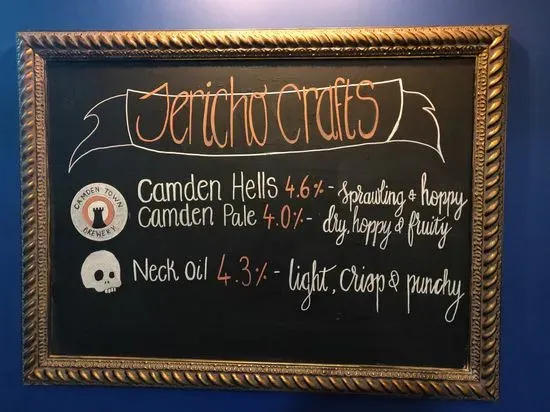 Jericho Crafts
CAMDEN TOWN
BREWERY
Camden Hells 4.6% - sprawling & hoppy
Camden Pale 4.0% - dry, hoppy & fruity
Neck Oil 4.3% - light, crisp & punchy